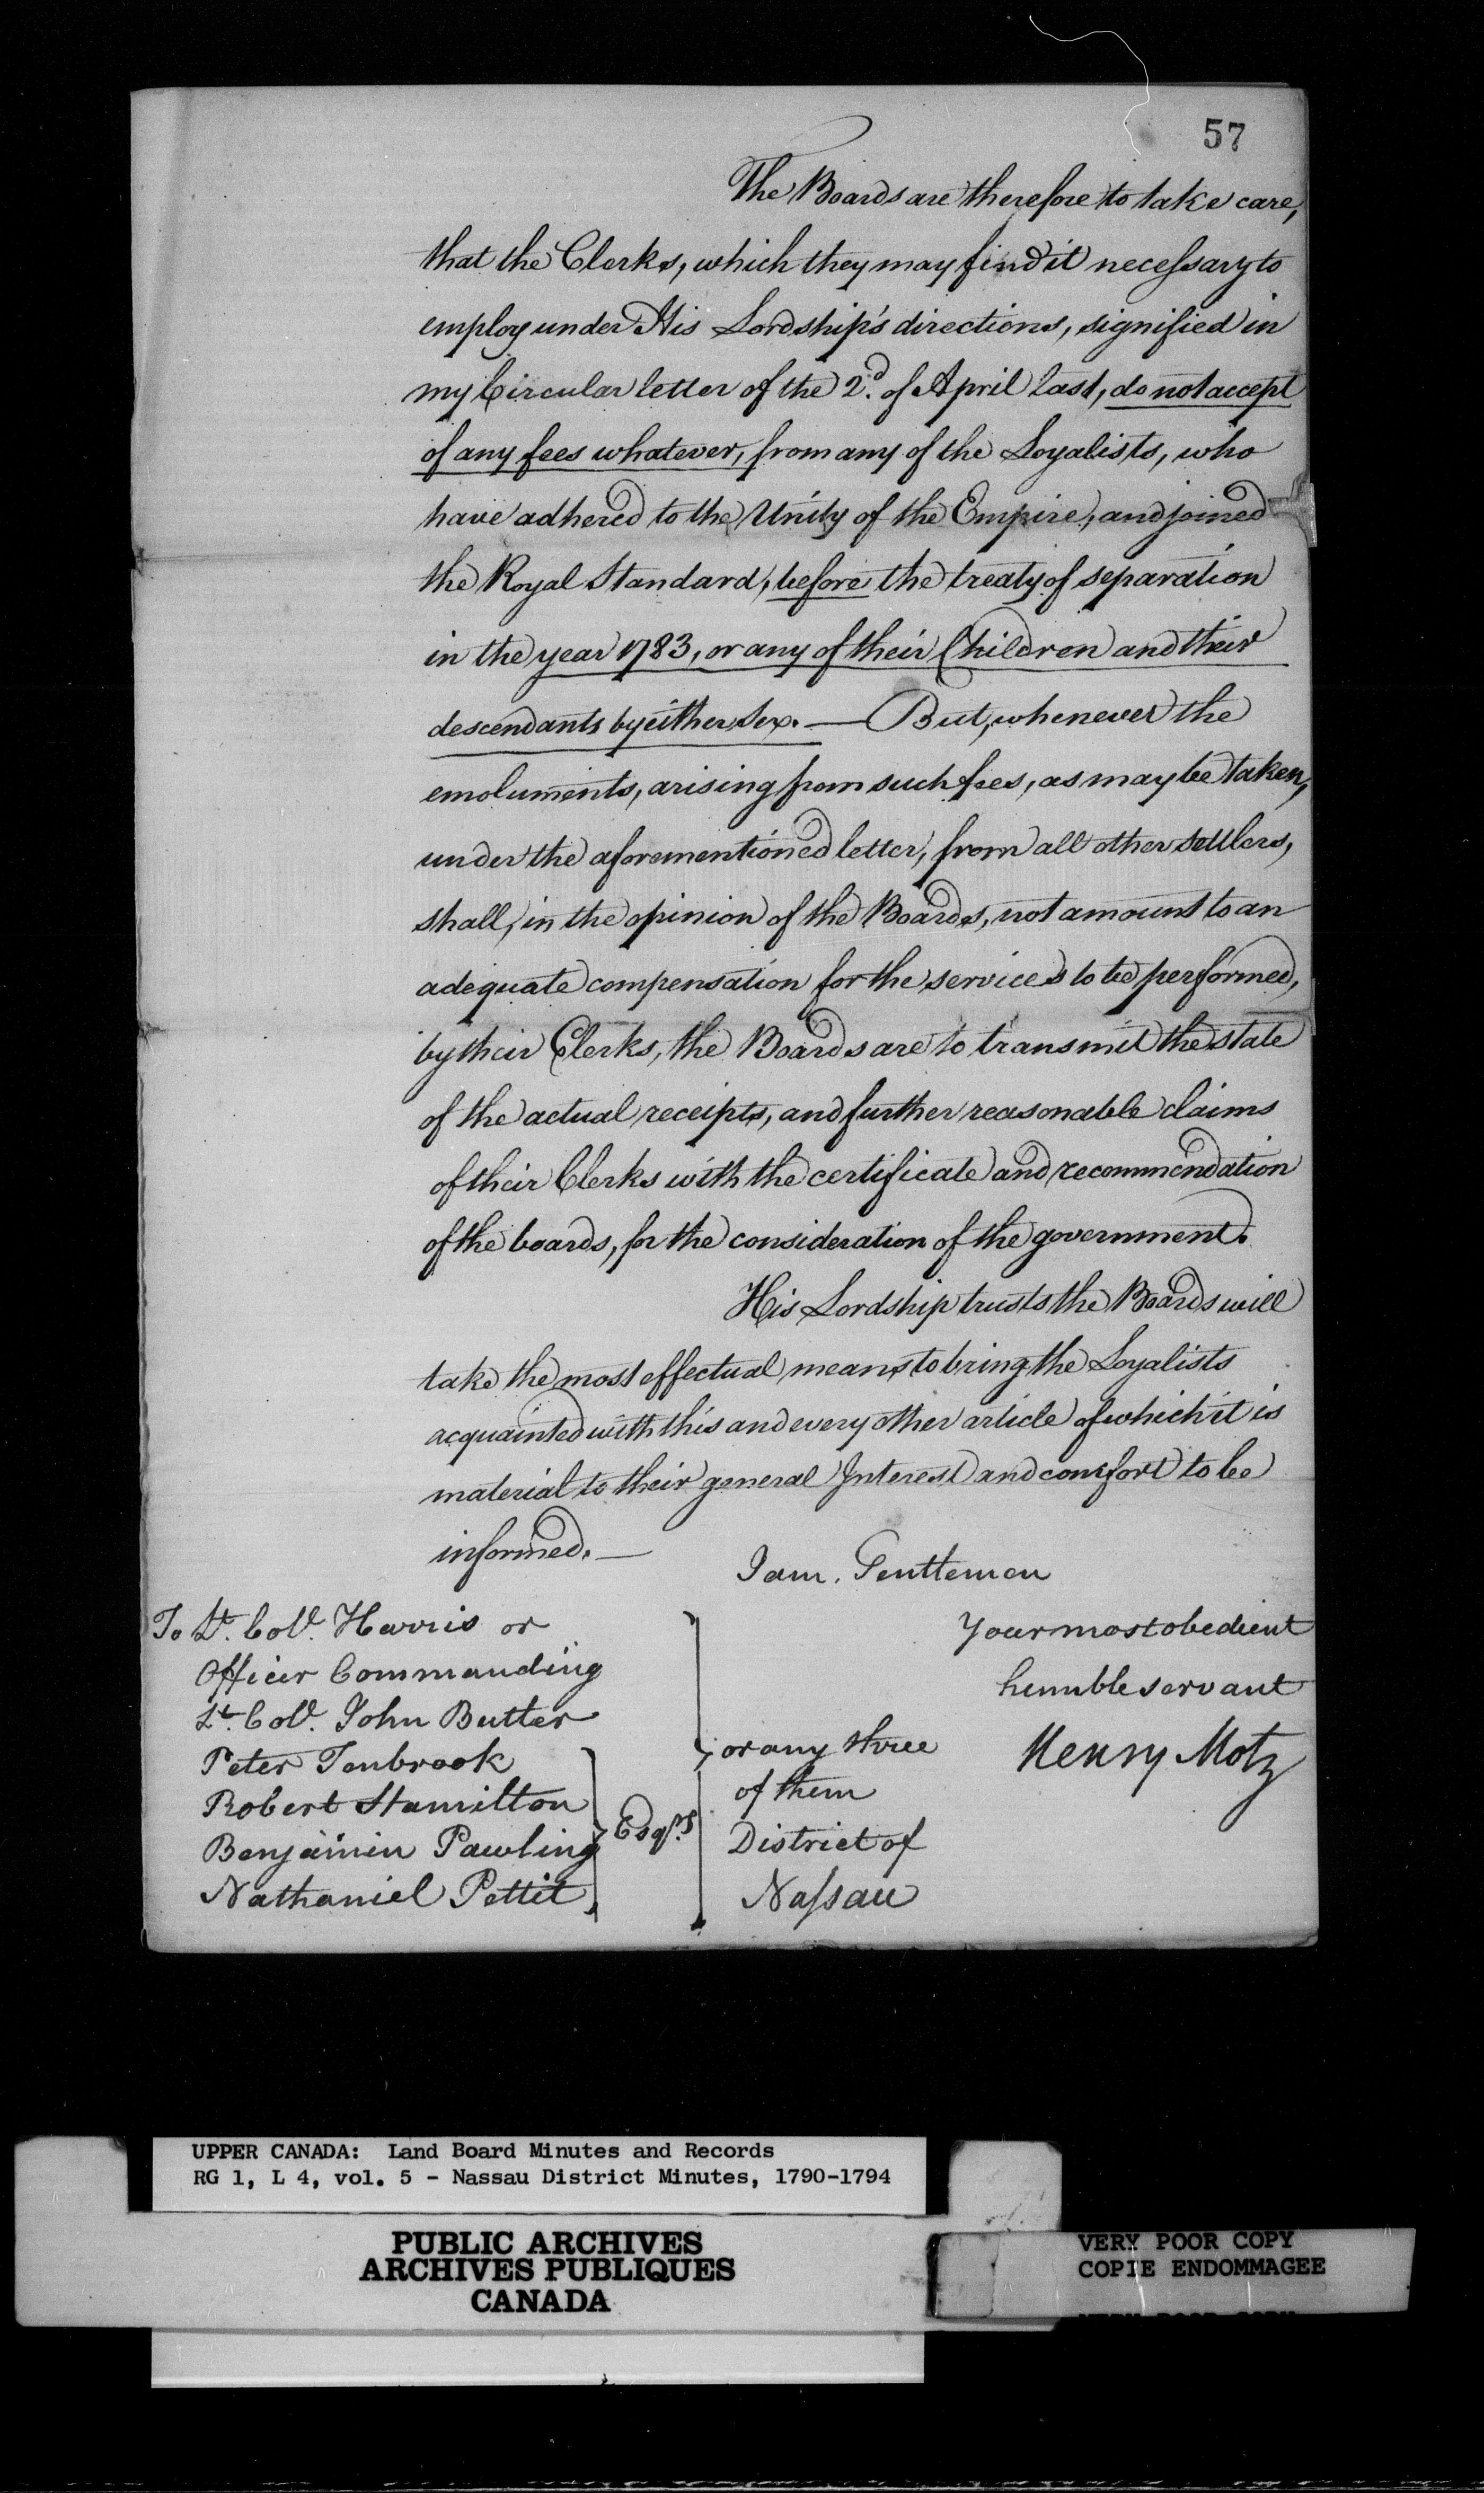 57
The Boards are therefore to take care,
that the Clerks, which they may find it necessary to
employ under His Lordship's directions, signified in
my Circular letter of the 2.d of April last, do not accept
of any fees whatever, from any of the Loyalists, who
have adhered to the Unity of the Empire, and joined
the Royal Standard, before the treaty of separation
in the year 1783, or any of their Children and their
descendants by either sex. — But, whenever the
emoluments, arising from such fees, as may be taken,
under the aforementioned letter, from all other settlers,
shall, in the opinion of the Boards, not amount to an
adequate compensation for the services to be performed,
by their Clerks, the Boards are to transmit the state
of the actual receipts, and further reasonable claims
of their Clerks with the certificate and recommendation
of the boards, for the consideration of the government.
His Lordship trusts the Boards will
take the most effectual means to bring the Loyalists
acquainted with this and every other article of which it is
material to their general Interest and comfort to be
informed. —
I am, Gentlemen
Your most obedient
humble servant
Henry Motz
To Lt. Col. Harris or
Officer Commanding
Lt. Col. John Butler
Peter Tenbrook
Robert Hamilton
Benjamin Pawling
Nathaniel Pettit,
Esqrs
or any three
of them
District of
Nassau
UPPER CANADA: Land Board Minutes and Records
RG 1, L 4, vol. 5 - Nassau District Minutes, 1790-1794
PUBLIC ARCHIVES
ARCHIVES PUBLIQUES
CANADA
VERY POOR COPY
COPIE ENDOMMAGEE
VERY POOR COPY